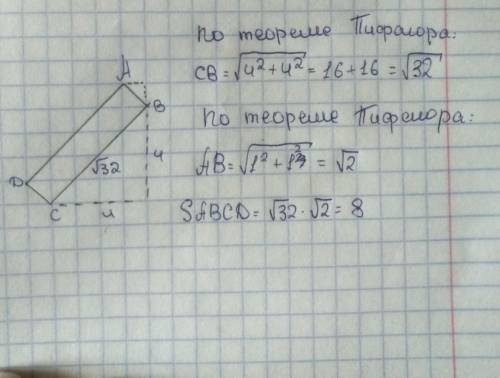 По теореме Пифагора:
CB = √4² + 4² = 16 + 16 = √32
По теореме Пифагора:
AB = √1² + 1² = √2
SABCD = √32 · √2 = 8
A
B
√32
4
D
C
4